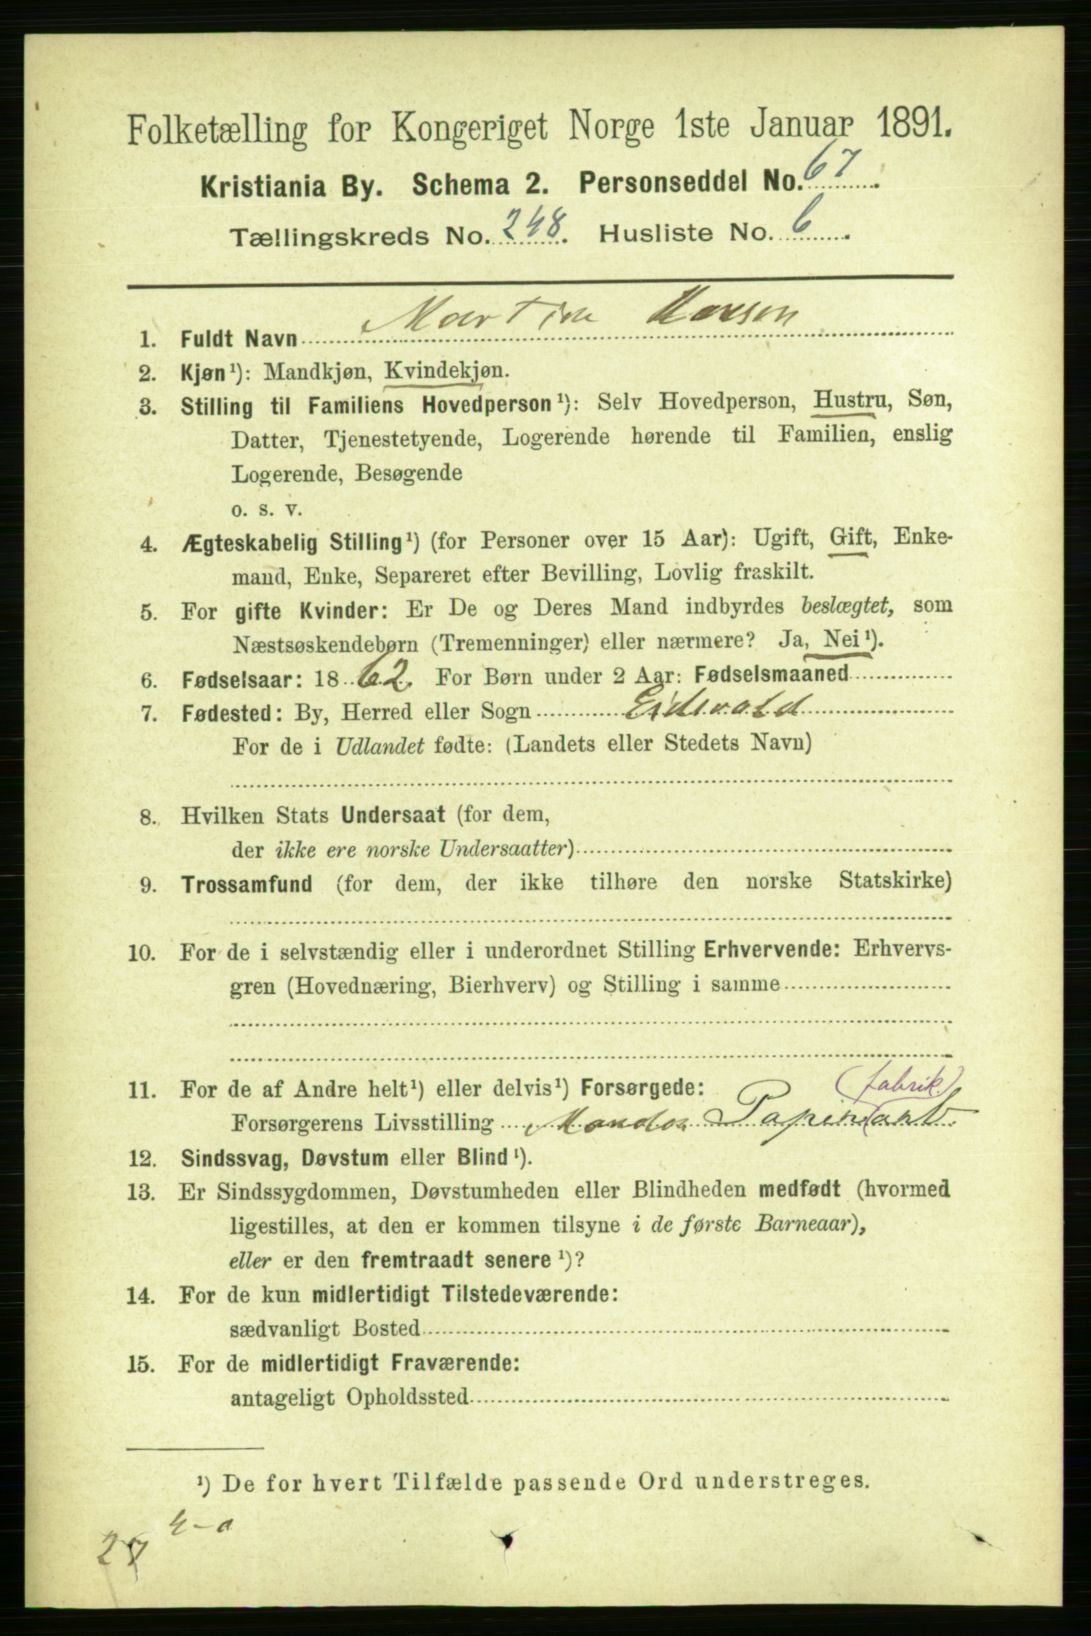 Folketælling for Kongeriget Norge 1ste Januar 1891.
Kristiania By. Schema 2. Personseddel No. 67.
Tællingskreds No. 248. Husliste No. 6.
1. Fuldt Navn Martine
2. Kjøn¹): Mandkjøn, Kvindekjøn.
3. Stilling til Familiens Hovedperson¹): Selv Hovedperson, Hustru, Søn,
Datter, Tjenestetyende, Logerende hørende til Familien, enslig
Logerende, Besøgende
o. s. v.
4. Ægteskabelig Stilling¹) (for Personer over 15 Aar): Ugift, Gift, Enke-
mand, Enke, Separeret efter Bevilling, Lovlig fraskilt.
5. For gifte Kvinder: Er De og Deres Mand indbyrdes beslægtet, som
Næstsøskendebørn (Tremenninger) eller nærmere? Ja, Nei¹).
6. Fødselsaar: 1862. For Børn under 2 Aar: Fødselsmaaned
7. Fødested: By, Herred eller Sogn Eidsvold
For de i Udlandet fødte: (Landets eller Stedets Navn)
8. Hvilken Stats Undersaat (for dem,
der ikke ere norske Undersaatter)
9. Trossamfund (for dem, der ikke tilhøre den norske Statskirke)
10. For de i selvstændig eller i underordnet Stilling Erhvervende: Erhvervs-
gren (Hovednæring, Bierhverv) og Stilling i samme
11. For de af Andre helt¹) eller delvis¹) Forsørgede:
fabrik
Forsørgerens Livsstilling
12. Sindssvag, Døvstum eller Blind¹).
13. Er Sindssygdommen, Døvstumheden eller Blindheden medfødt (hvormed
ligestilles, at den er kommen tilsyne i de første Barneaar),
eller er den fremtraadt senere¹)?
14. For de kun midlertidigt Tilstedeværende:
sædvanligt Bosted
15. For de midlertidigt Fraværende:
antageligt Opholdssted
¹) De for hvert Tilfælde passende Ord understreges.
4-0
27